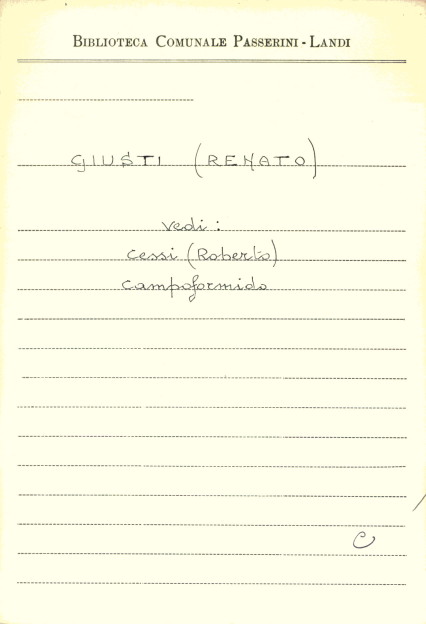 BIBLIOTECA COMUNALE PASSERINI - LANDI
GIUSTI (RENATO)
Vedi:
Cessi (Roberto)
Campoformido
C